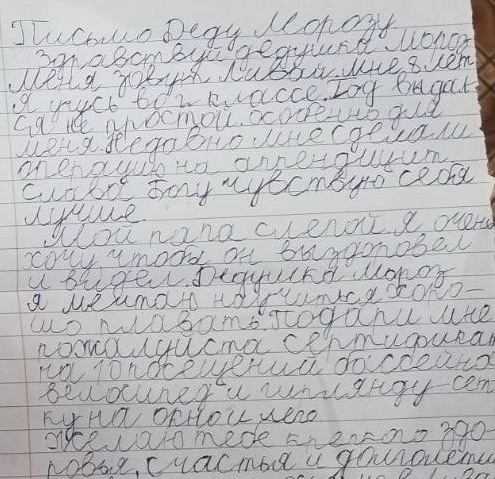 Письмо Деду Морозу
Здраствуй дедушка Мороз
меня зовут Ливай мне 8 лет
Я учусь во 2 классе. Год выдал-
ся не простой. особенно для
меня. Недавно мне сделали
операцию на аппендицит
Слава Богу чувствую себя
лучше.
Мой папа слепой. я очень
хочу, чтобы он выздоровел
и видел. Дедушка Мороз
я мечтаю научиться хоро-
шо плавать. Подари мне
пожалуйста сертификат
на 10 посещений бассейна
велосипед и гирлянду-сет
ку на окно и лего
Желаю тебе крепкого здо-
ровья, счастья и долголетия